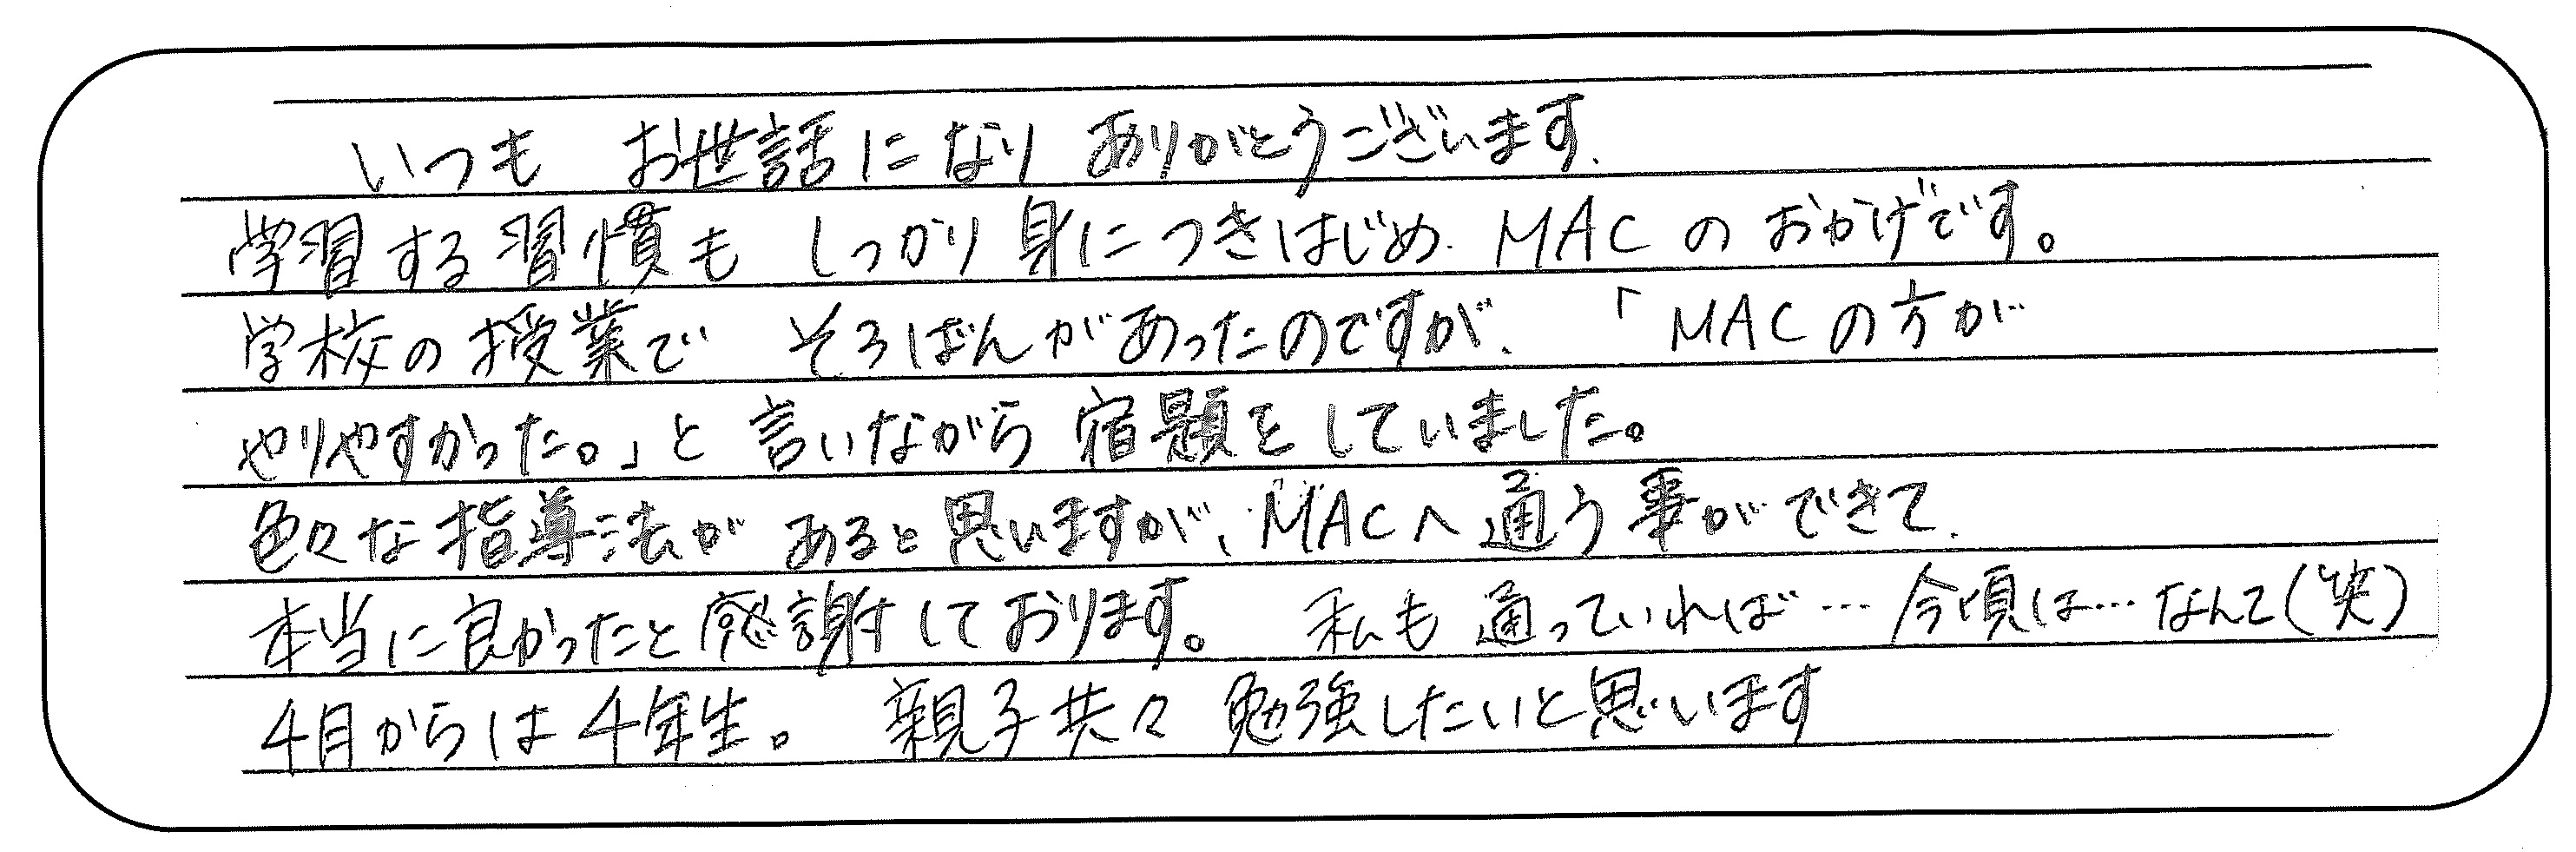 いつも お世話になり ありがとうございます.
学習する習慣も しっかり身につきはじめ. MACのおかげです。
学校の授業で そろばんがあったのですが、「MACの方が
やりやすかった。」と 言いながら 宿題をしていました。
色々な指導法が あると思いますが、MACへ通う事ができて.
本当に良かったと感謝しております。 私も 通っていれば…今頃は…なんて(笑)
4月からは4年生。 親子共々 勉強したいと思います